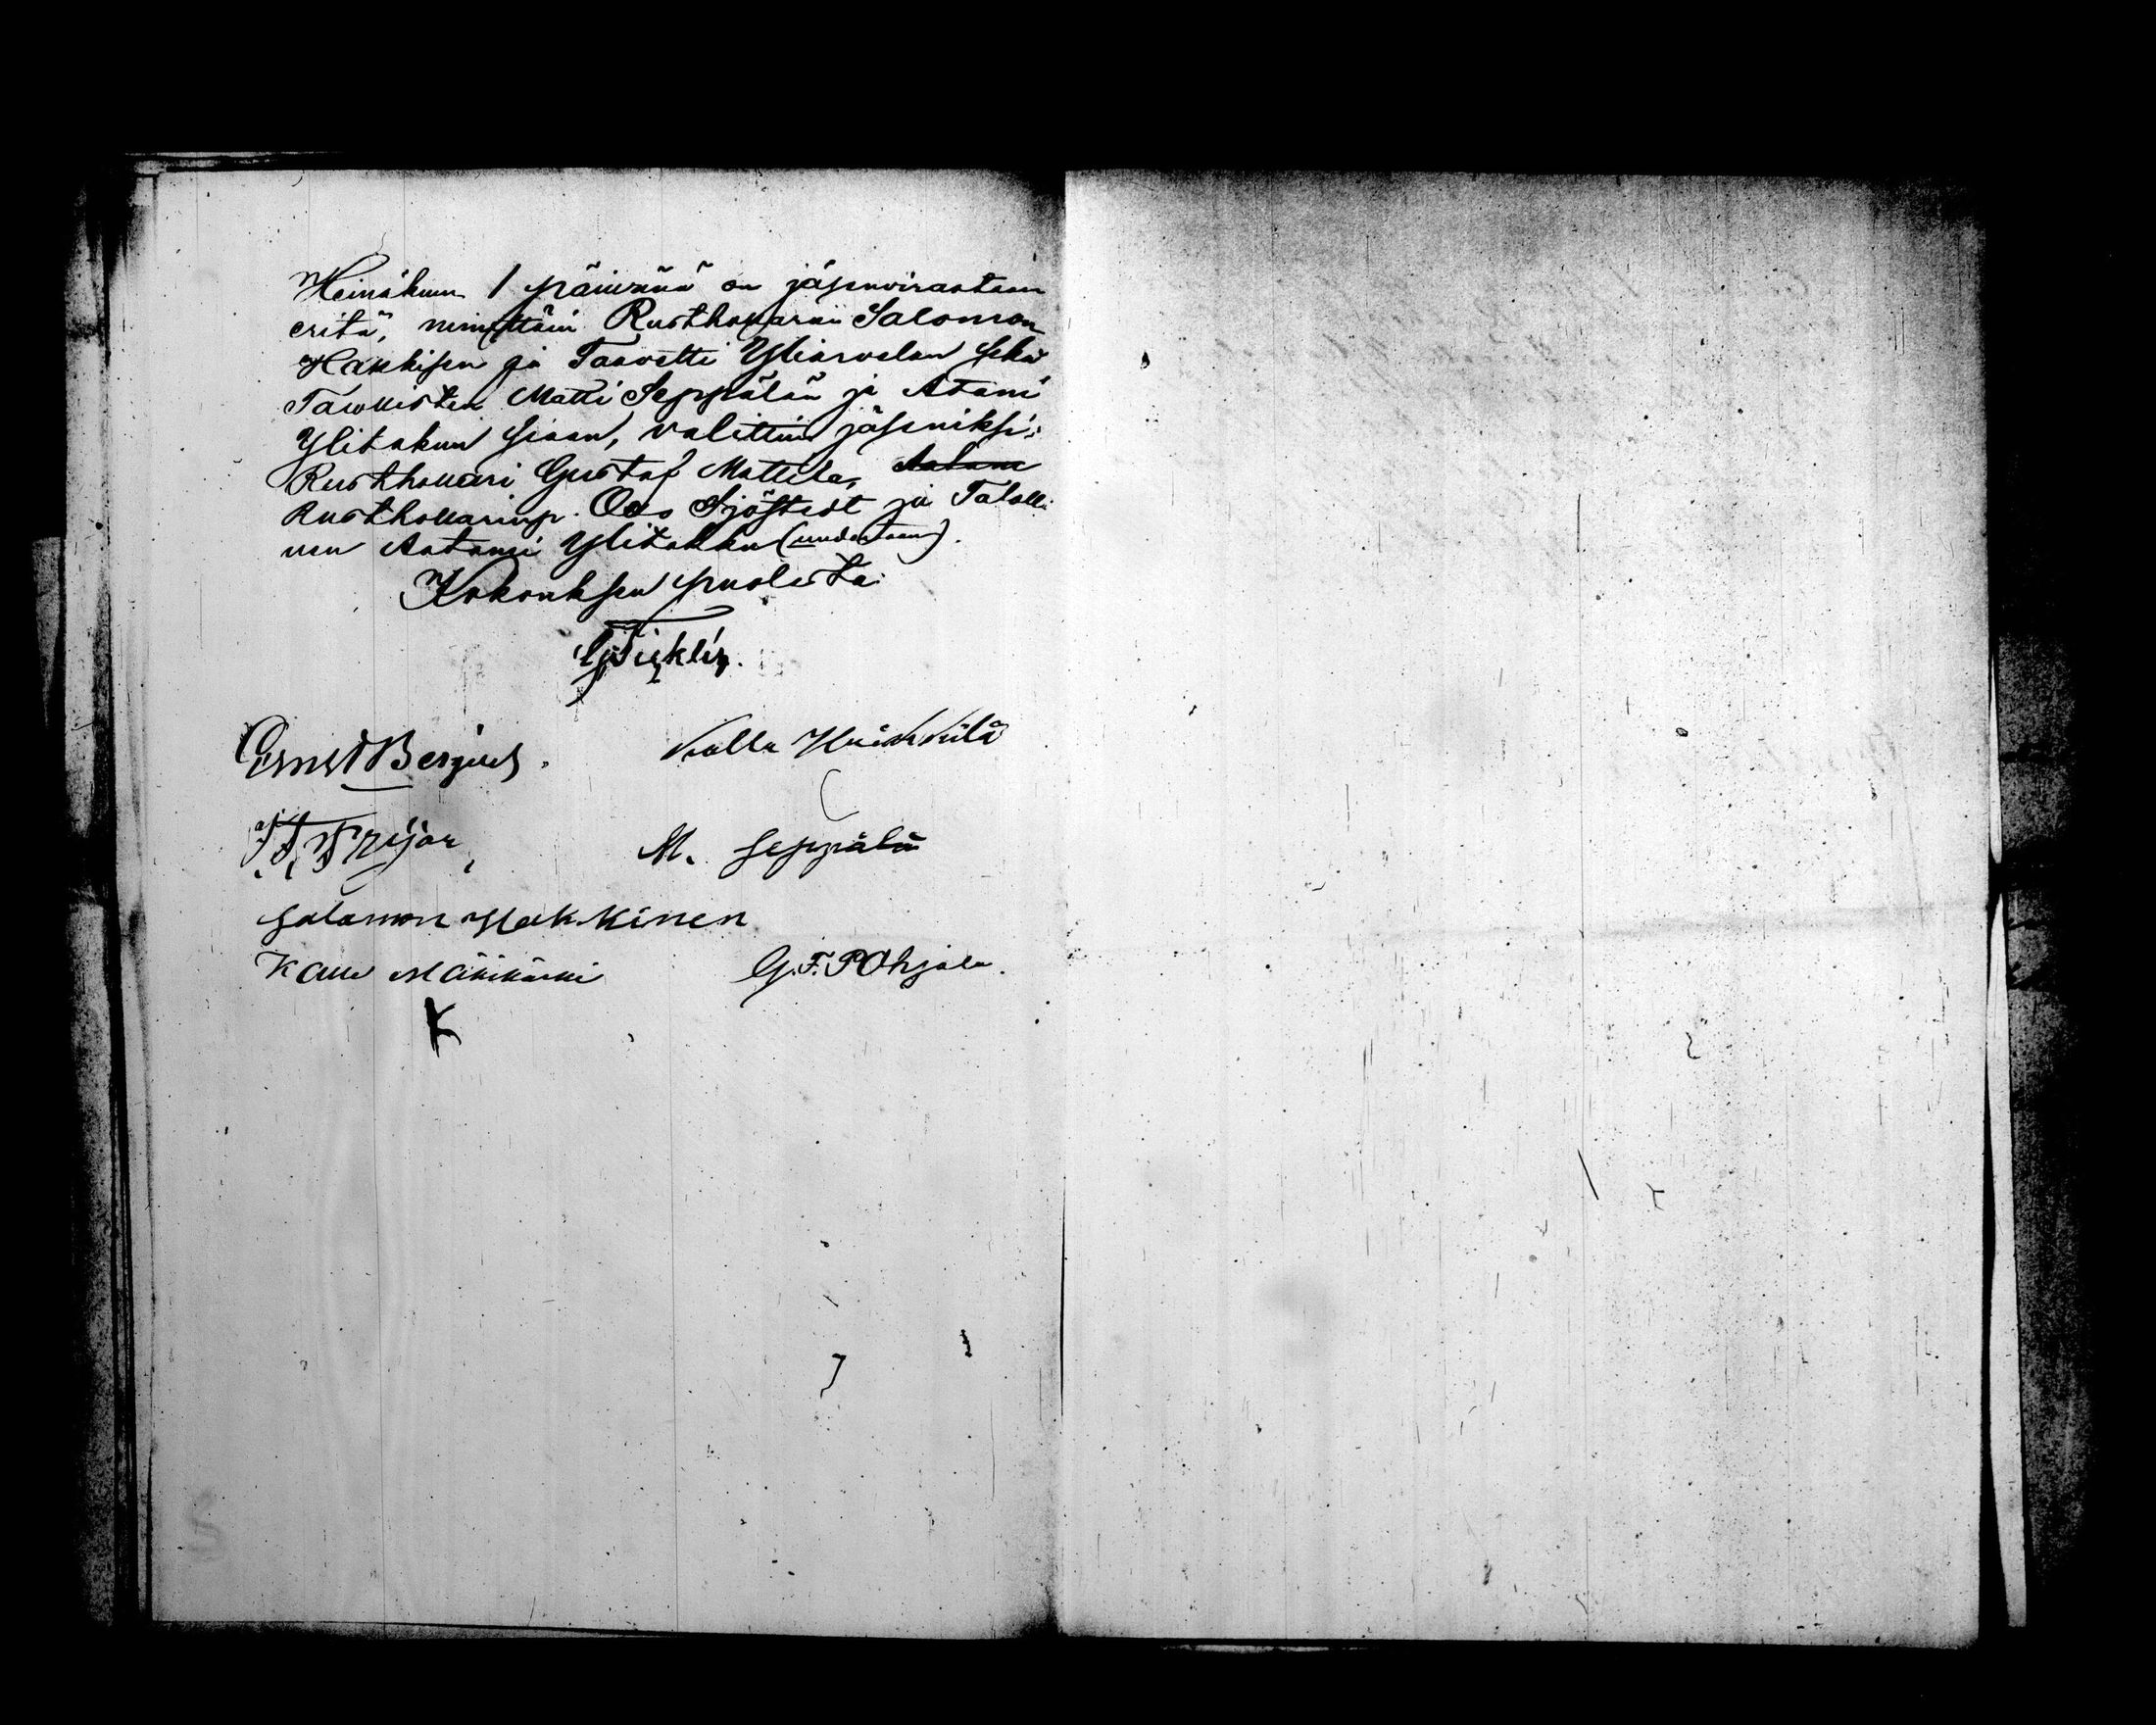 Heinäkuun 1 päiwänä on jäsenvirastaan
eritä, nimittäin Rusthollarin Salomon
Hakkisen ja Taavetti Yliarvelan sekä
Matti Seppälän ja Atami
Ylitakun siaan, valittiin jäseniksi:
Rusthollari Gustaf Mattila, Aatami
Rusthollarinp. Sjöstedt ja Talolli-
nen Aatami Ylitakku (uudestaan).
Kokouksen puolesta:
Ernst Bergius. Kalle Heikkilä
M. Seppälä
Salamon Hakkinen
Kalle Mäkikärki G.F. Pohjala.